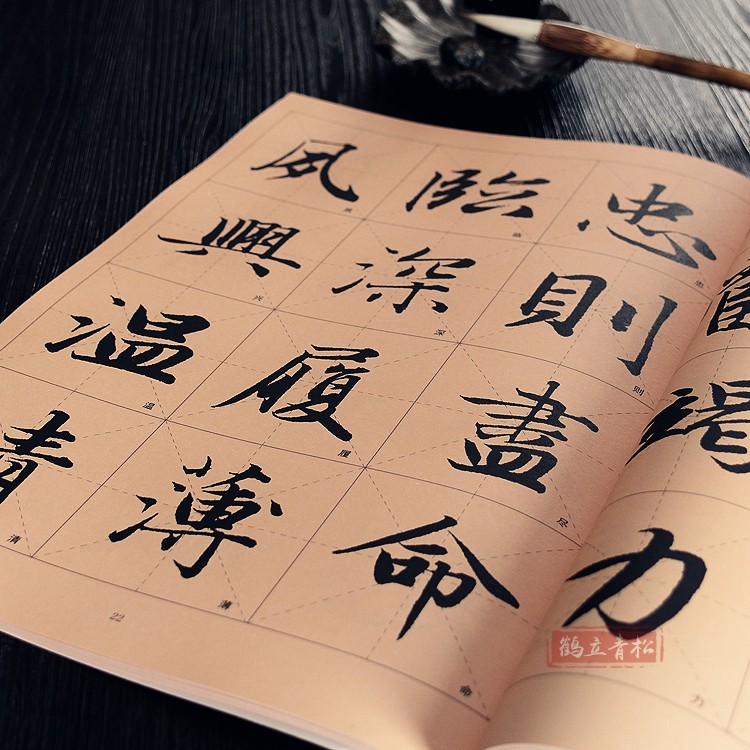 竭力
忠則盡命
臨深履薄
夙興温清
忠 则 尽 命
临 深 履 薄
夙 兴 温 清
力
22
鹤立青松